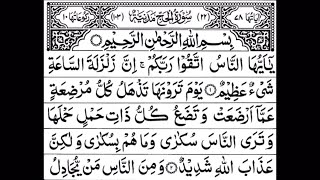 اٰیاتها ٧٨ (٢٢) سُوْرَةُ الْحَجِّ مَدَنِيَّةٌ (١٠٣) رکوعاتها ١٠
بِسْمِ اللّٰهِ الرَّحْمٰنِ الرَّحِيْمِ
يٰۤاَيُّهَا النَّاسُ اتَّقُوْا رَبَّكُمْ ۚ اِنَّ زَلْزَلَةَ السَّاعَةِ
شَیْءٌ عَظِيْمٌ ۝١ يَوْمَ تَرَوْنَهَا تَذْهَلُ كُلُّ مُرْضِعَةٍ
عَمَّاۤ اَرْضَعَتْ وَتَضَعُ كُلُّ ذَاتِ حَمْلٍ حَمْلَهَا
وَتَرَى النَّاسَ سُكٰرٰى وَمَا هُمْ بِسُكٰرٰى وَلٰكِنَّ
عَذَابَ اللّٰهِ شَدِيْدٌ ۝٢ وَمِنَ النَّاسِ مَنْ يُّجَادِلُ